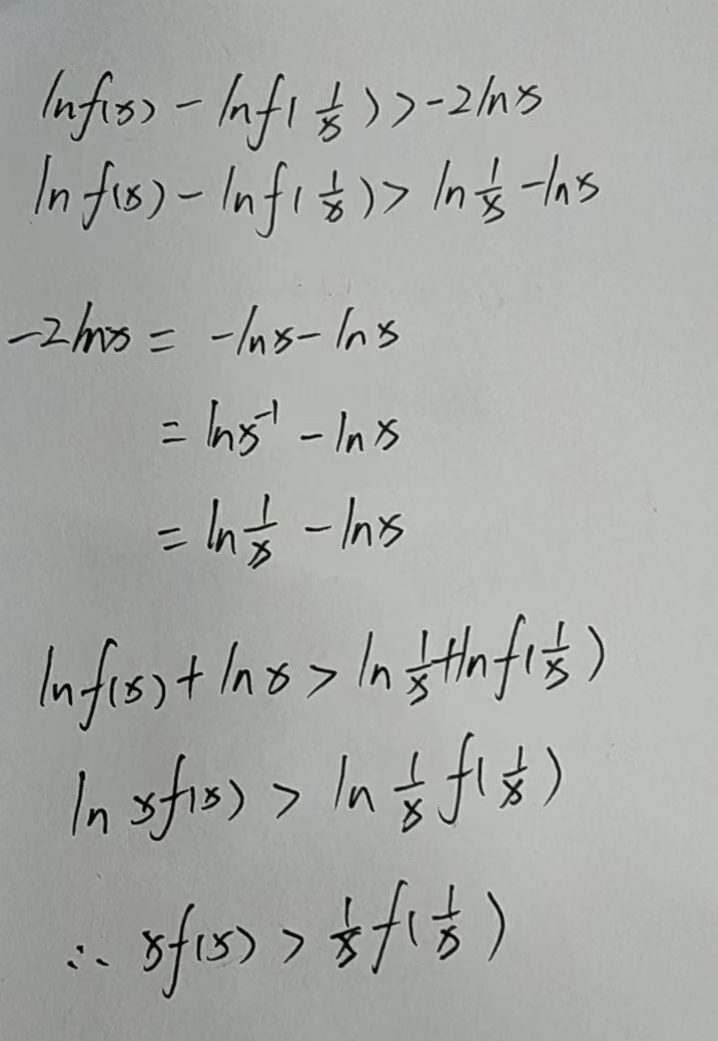 ln f(x) - ln f(1/x) > -2lnx
ln f(x) - ln f(1/x) > ln 1/x - lnx
-2lnx = -lnx - lnx
= lnx⁻¹ - lnx
= ln 1/x - lnx
ln f(x) + lnx > ln 1/x + ln f(1/x)
ln xf(x) > ln 1/x f(1/x)
∴ xf(x) > 1/x f(1/x)